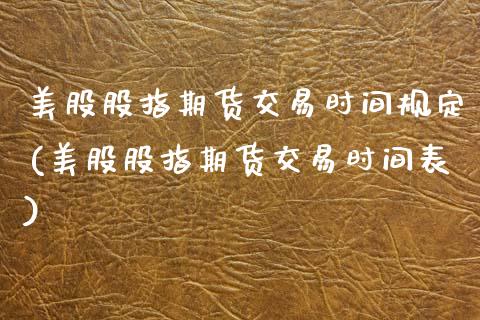 美股股指期货交易时间规定
(美股股指期货交易时间表
)